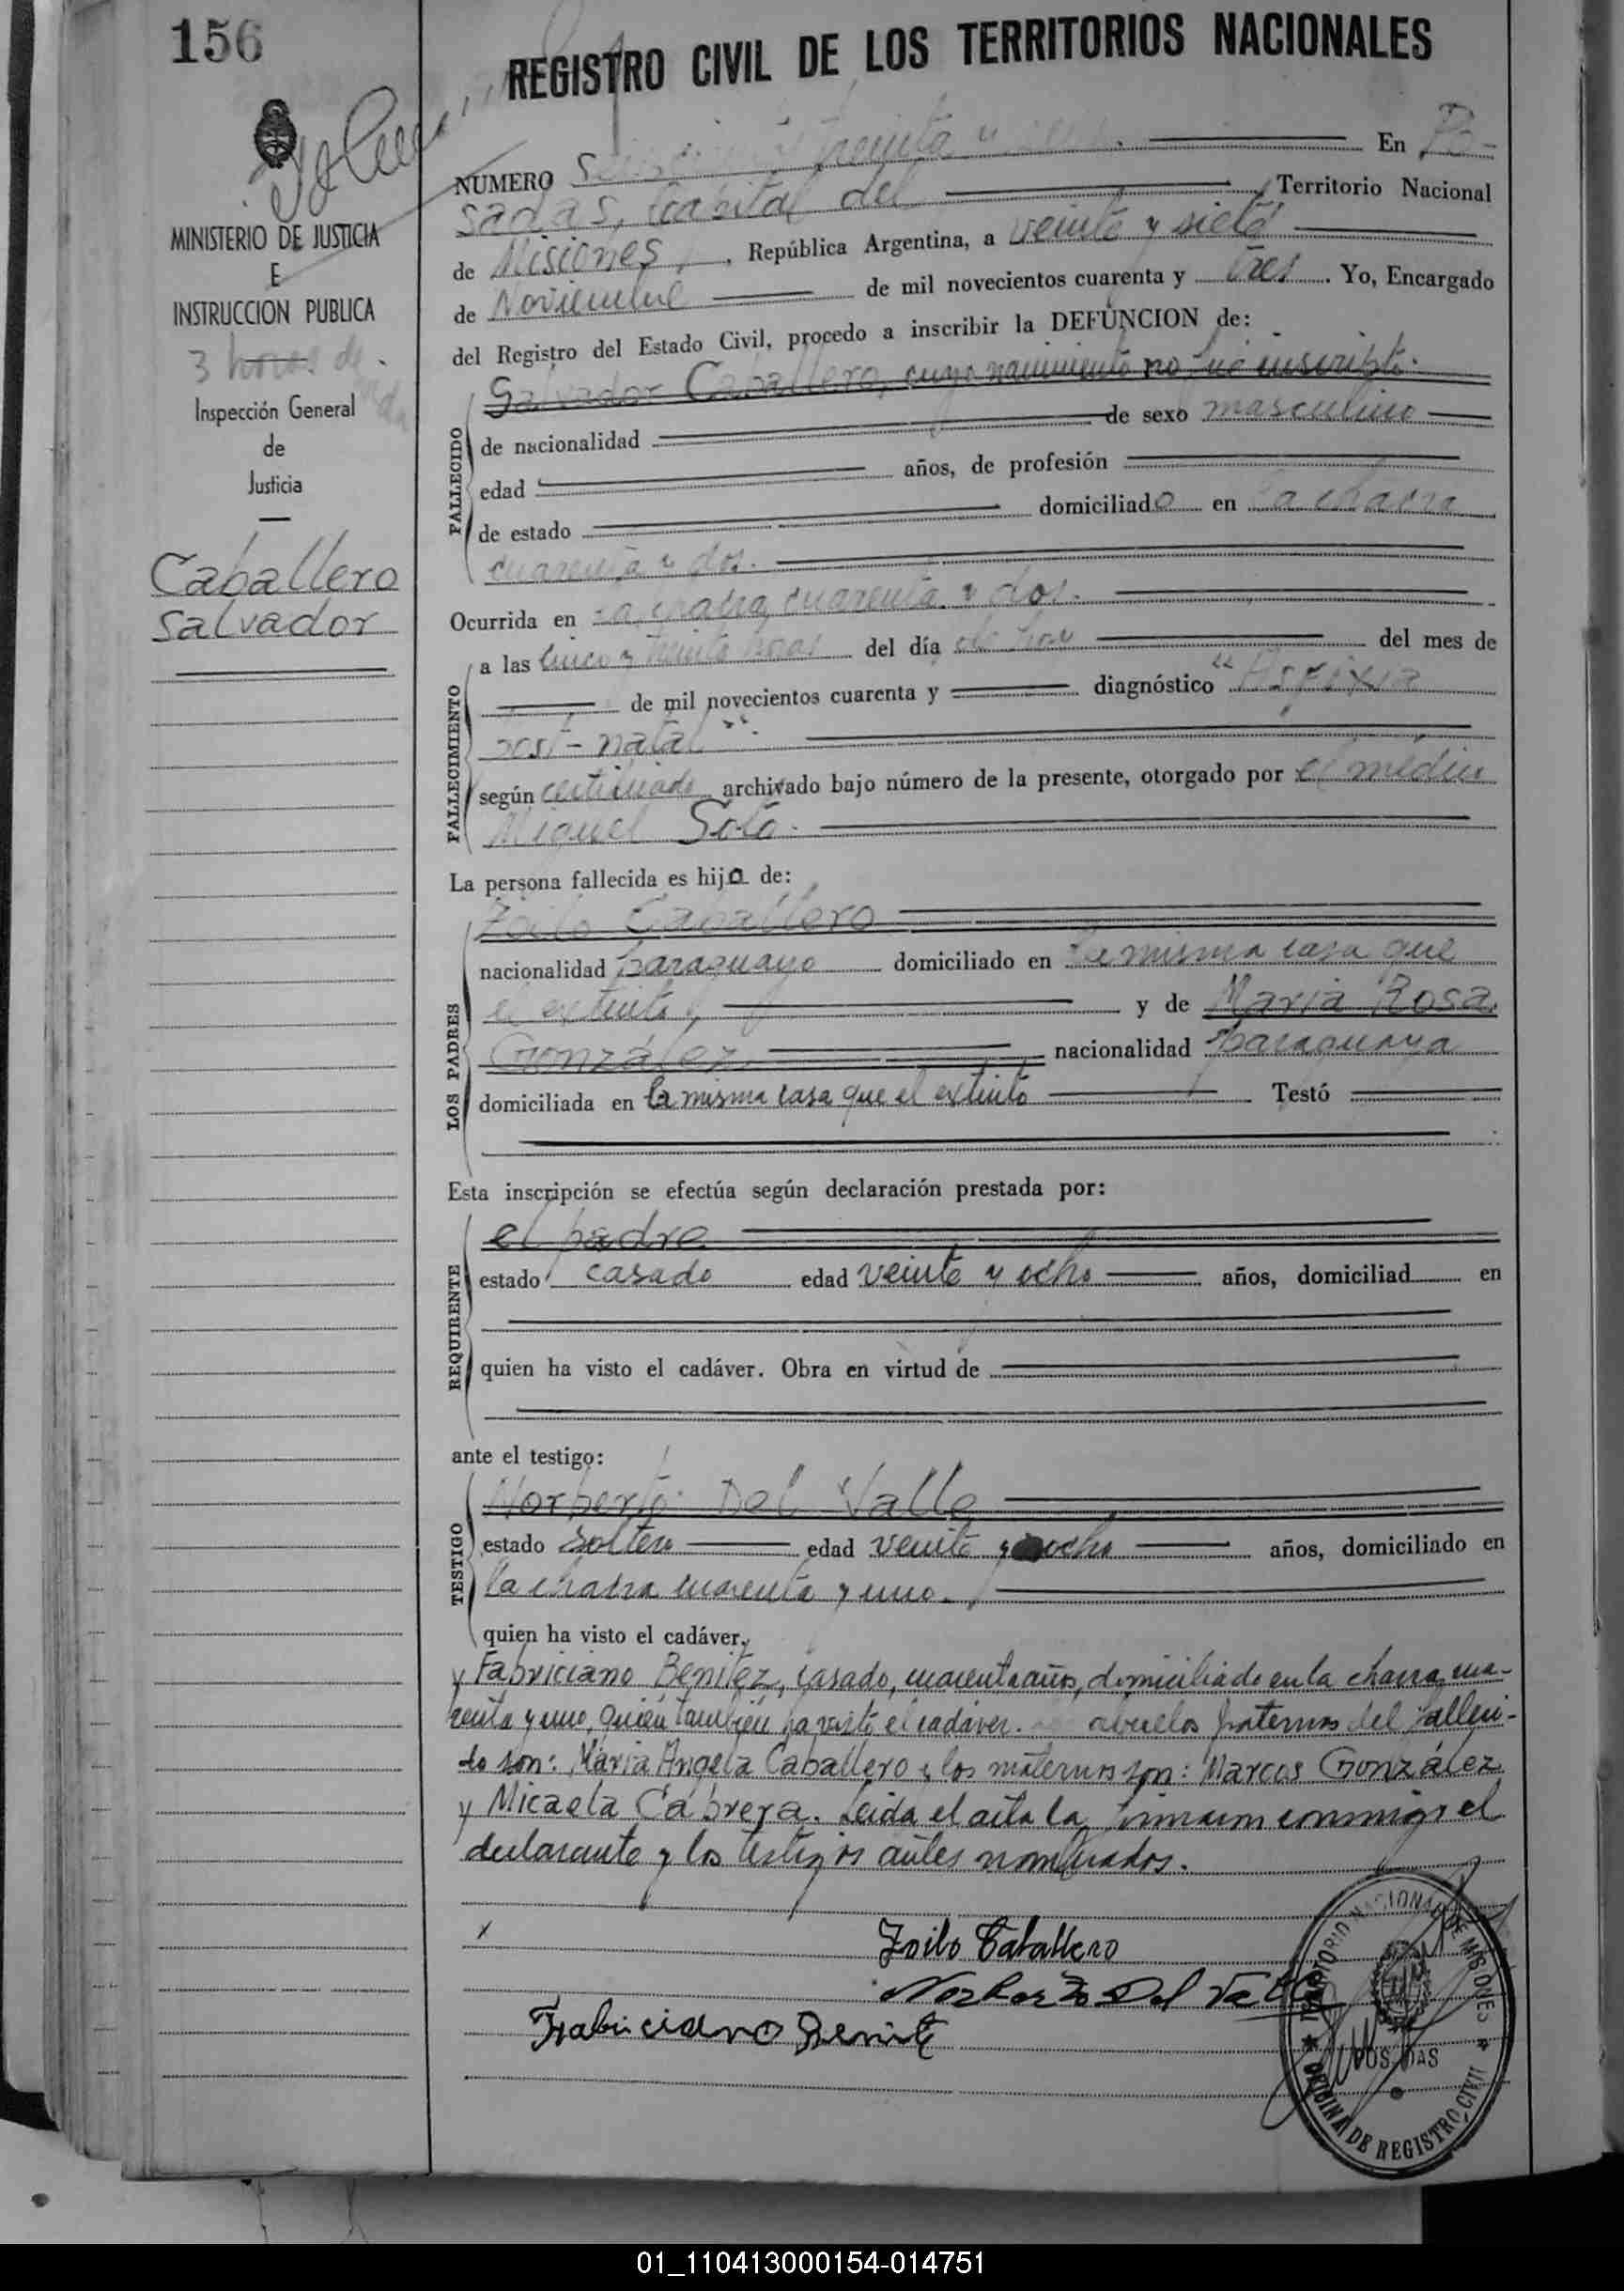 156
REGISTRO CIVIL DE LOS TERRITORIOS NACIONALES
MINISTERIO DE JUSTICIA
E
INSTRUCCION PUBLICA
3 horas de
Inspección General
de
Justicia
Caballero
Salvador
NUMERO treinta y En Po-
sadas, Capital del Territorio Nacional
de Misiones, , República Argentina, a veinte y siete
de Noviembre de mil novecientos cuarenta y tres . Yo, Encargado
del Registro del Estado Civil, procedo a inscribir la DEFUNCION de:
FALLECIDO
Salvador Caballero, cuyo nacimiento no fue inscripto.
de nacionalidad de sexo masculino
edad años, de profesión
de estado domiciliado en la chacra
cuarenta y dos.
Ocurrida en la chacra cuarenta y dos.
FALLECIMIENTO
a las cinco y treinta horas del día de hoy del mes de
de mil novecientos cuarenta y diagnóstico "Asfixia
post-natal".
según certificado archivado bajo número de la presente, otorgado por el médico
Miguel Soto.
La persona fallecida es hijo de:
LOS PADRES
Zoilo Caballero
nacionalidad paraguayo domiciliado en la misma casa que
el extinto y de Maria Rosa
González nacionalidad paraguaya
domiciliada en la misma casa que el extinto Testó
Esta inscripción se efectúa según declaración prestada por:
REQUIRENTE
el padre
estado casado edad veinte y ocho años, domiciliad en
quien ha visto el cadáver. Obra en virtud de
ante el testigo:
TESTIGO
Norberto Del Valle
estado soltero edad veinte y ocho años, domiciliado en
la chacra cuarenta y uno.
quien ha visto el cadáver.
y Fabriciano Benitez, casado, cuarenta años, domiciliado en la chacra cua-
renta y uno, quien también ha visto el cadaver. abuelos paternos del falleci-
do son: Maria Angela Caballero y los maternos son: Marcos González
y Micaela Cabrera. Leida el acta la firmaron conmigo el
declarante y los testigos antes nombrados.
Zoilo Caballero
Norberto Del Valle
Fabriciano Benite
TERRITORIO NACIONAL DE MISIONES
POSADAS
OFICINA DE REGISTRO CIVIL
01_110413000154-014751